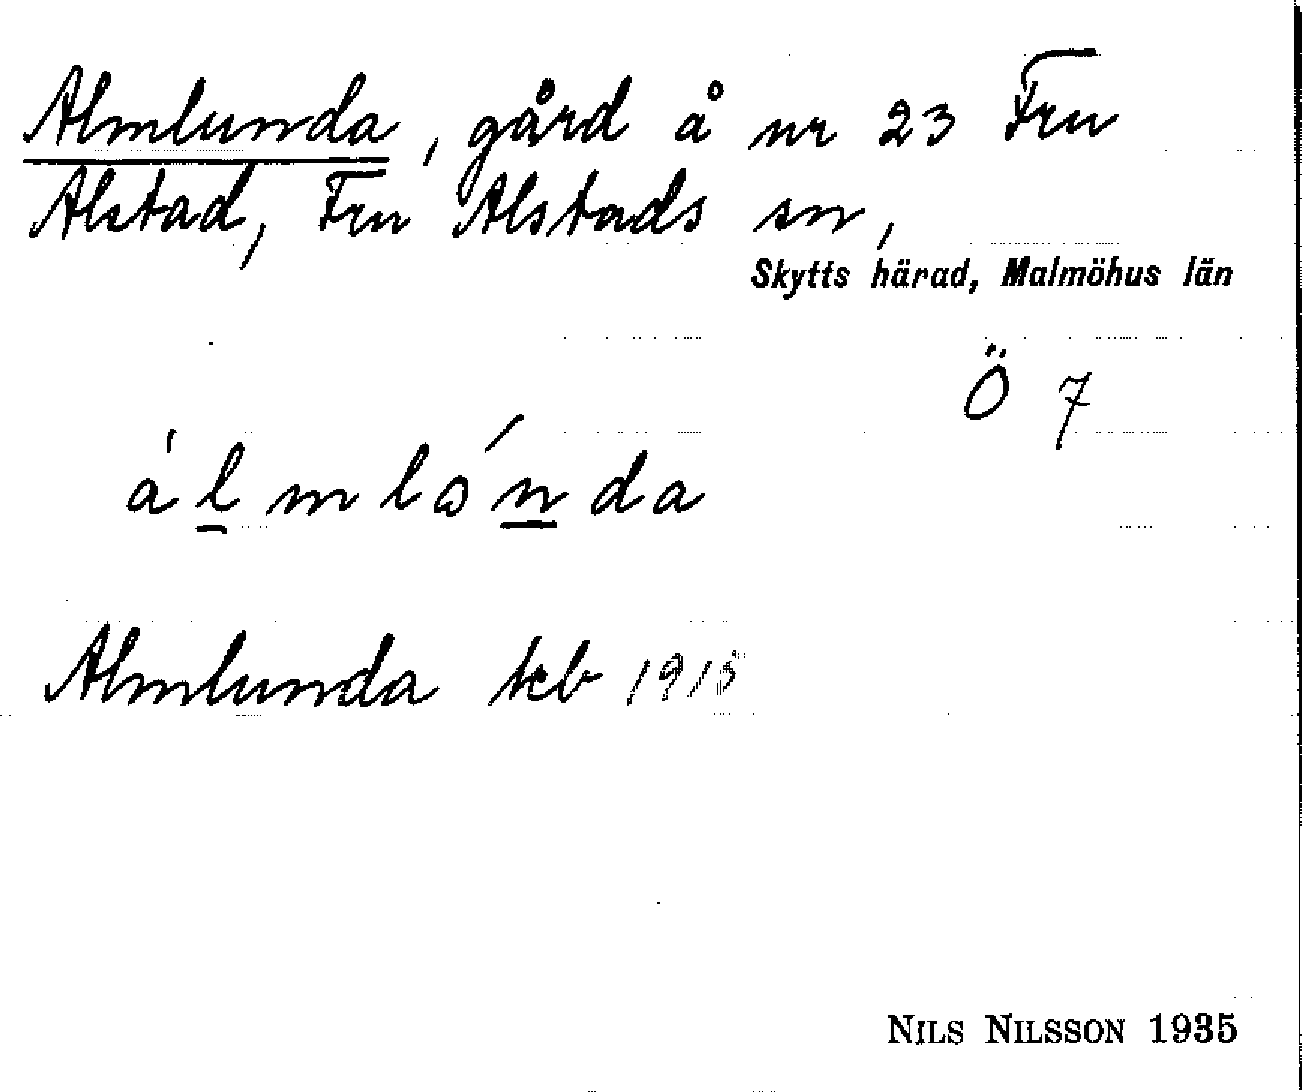 Almlunda, gård å nr 23 Fru
Alstad, Fru Alstads sn,
Skytts härad, Malmöhus län
Ö 7
àlmlón̲da
Almlunda tkb 1915
NILS NILSSON 1935